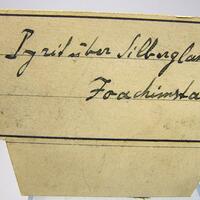 Pyrit über Silberglan
Joachimsta